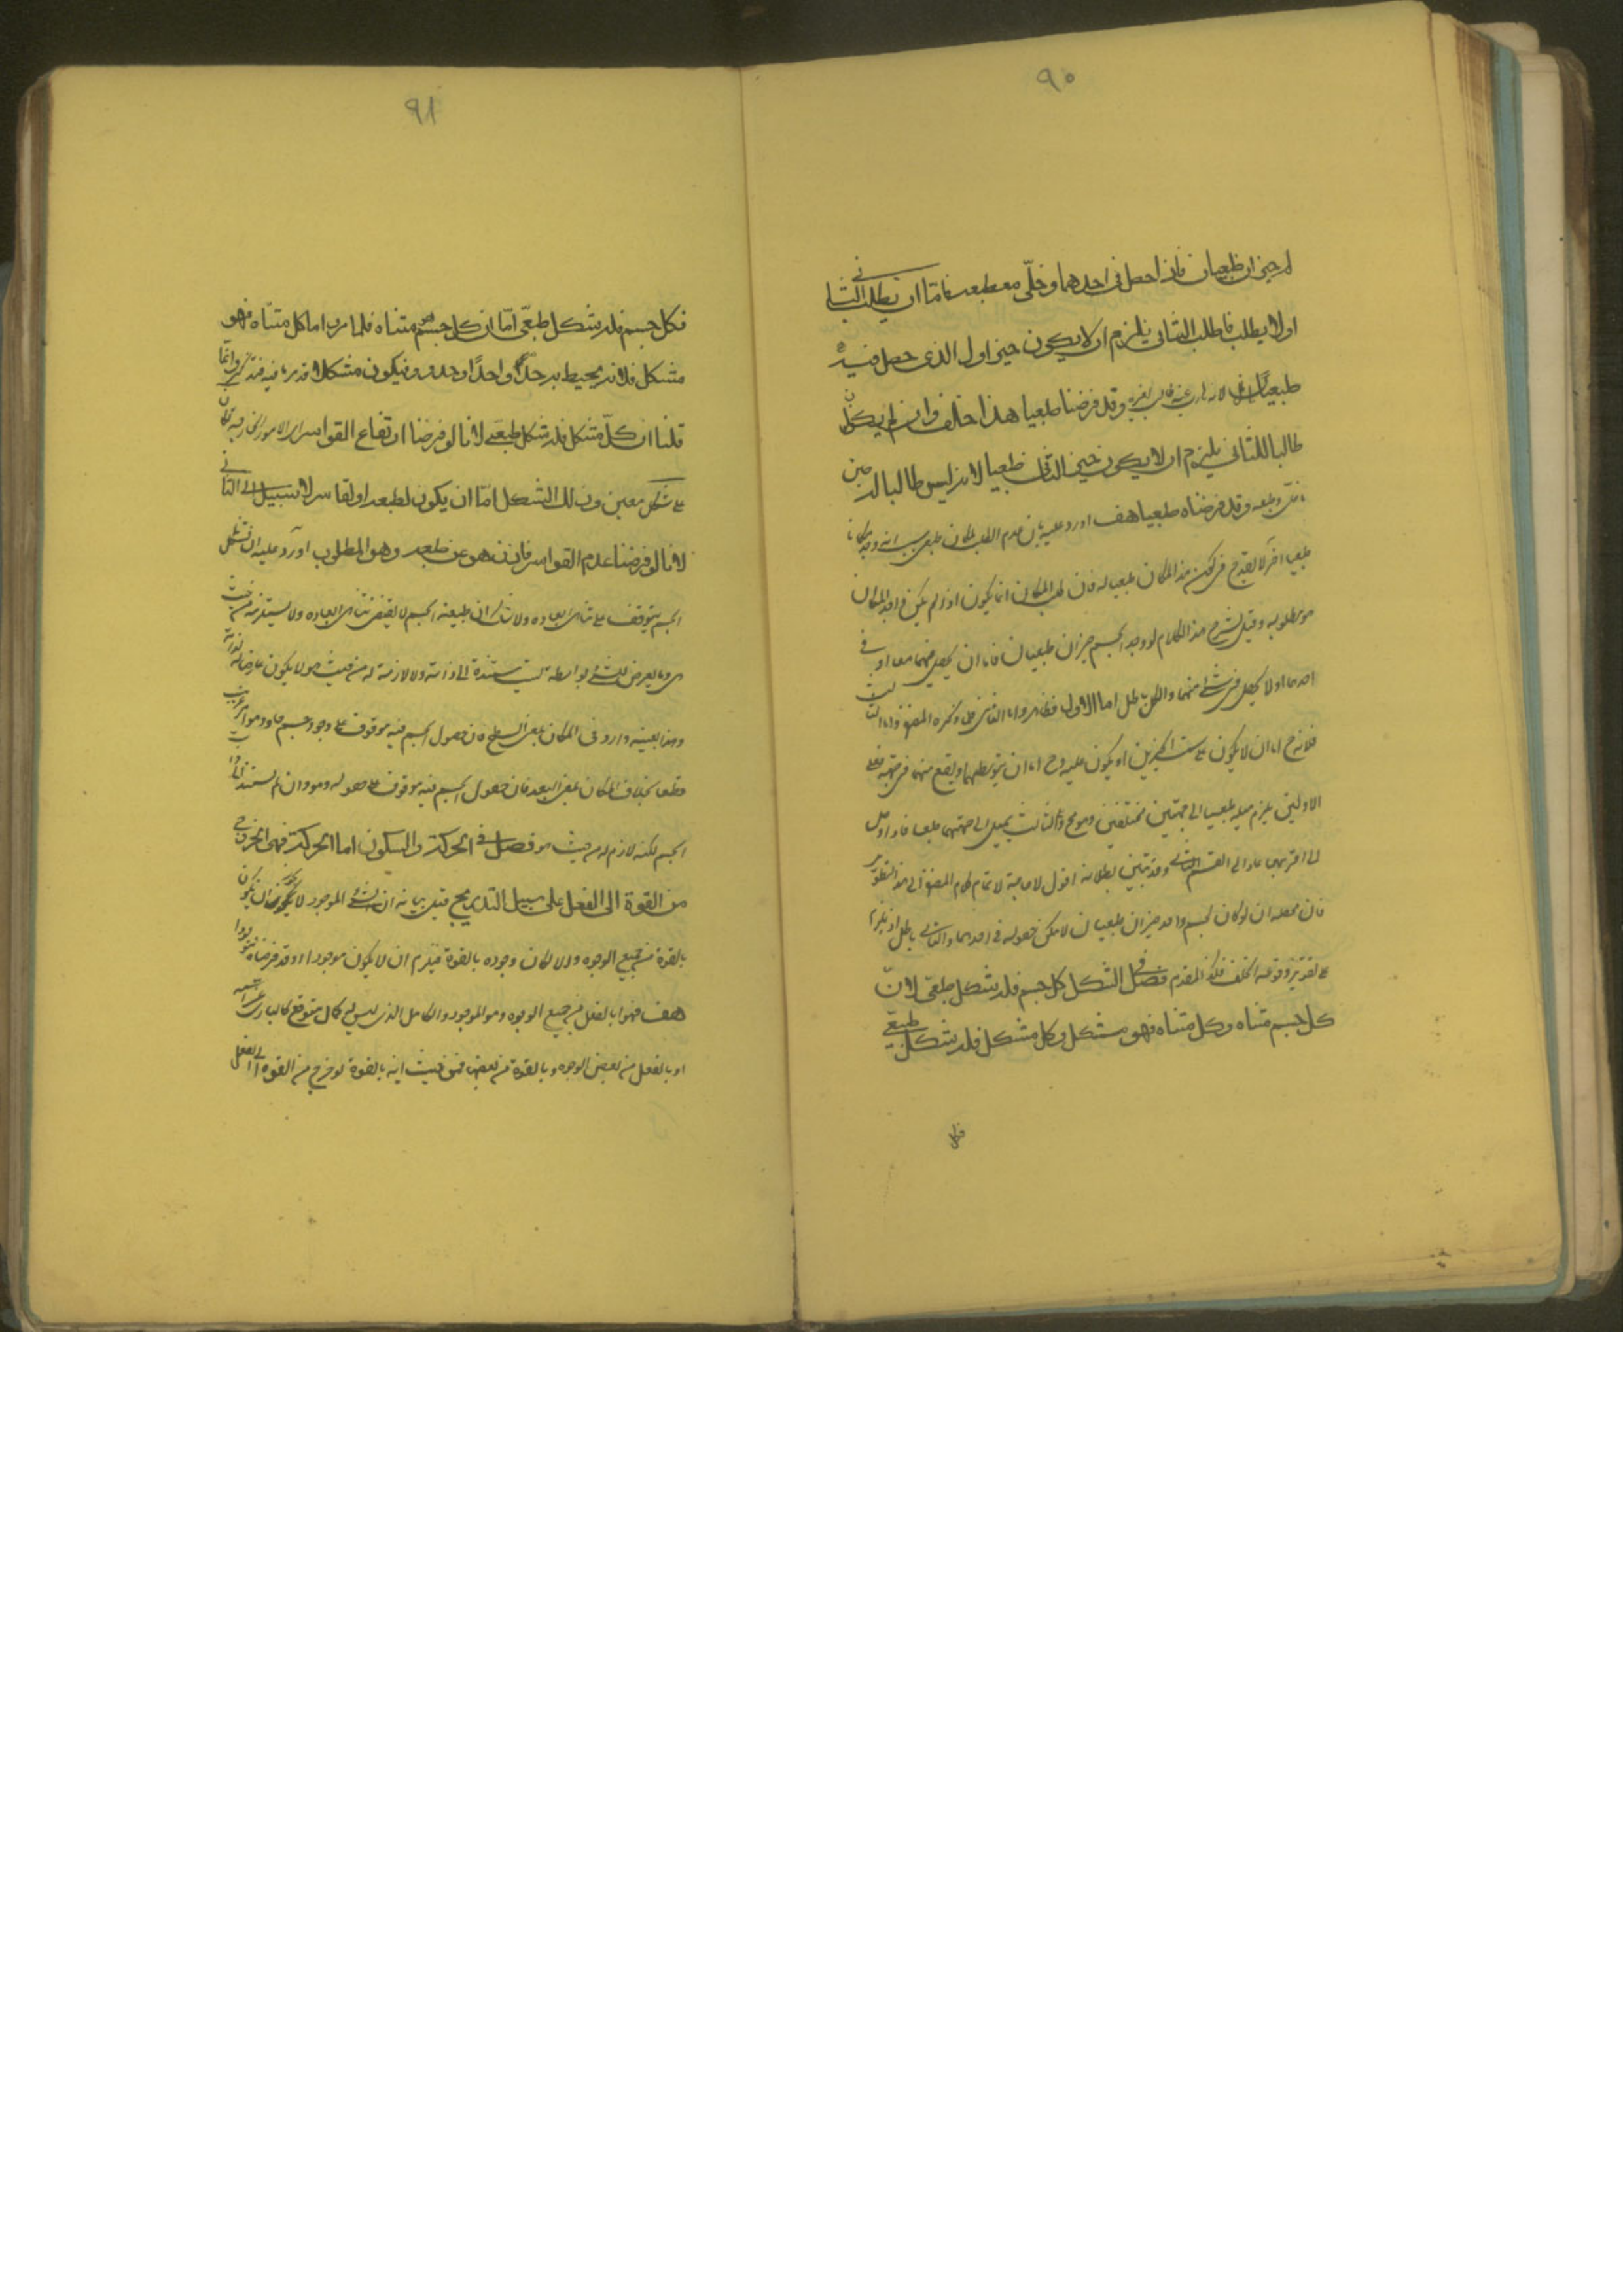 ٩٠
له حيزان طبعيان فاذا حصل فى احدهما وخلّى مع طبعه فامّا ان يطلب الثانى
اولا يطلب فاطلب الثانى يلزم ان لا يكون حيز اول الذى حصل فيه
طبعيّا لانه هارب عنه طالب لغيره وقد فرضنا طبعيا هذا خلف وان لم يكن
طالبا للثانى يلزم ان لا يكون حيز الثانى طبعيا لانه ليس طالبا له حين
ما خلى وطبعه وقد فرضناه طبعيا هف اورد عليه بان عدم الطلب لمكان طبعى بسبب انه وجد مكانا
طبعيا آخر لا يقدح فى كون هذا المكان طبعيا له فان طلب المكان انما يكون اذا لم يكن فى واجد المكان
هو مطلوبه وقيل لشرح هذا الكلام لو وجد لجسم حيزان طبعيان فاما ان يحصل فيهما معا او فى
احدهما او لا يحصل فى شئ منهما والكل باطل اما الاول فظاهر واما الثانى فلما ذكره المصنف واما الثالث
فلانه ح اما ان لا يكون على سمت الحيزين او يكون عليه وح اما ان يتوسطهما او يقع منهما فى جهة فعلى
الاولين يلزم ميله طبعيا الى جهتين مختلفتين وهو مح وعلى الثالث يميل الى جهتهما طبعا فاذا وصل
الى اقربهما عاد الى القسم الثانى وقد تبين بطلانه اقول لا حاجة لاتمام كلام المصنف الى هذا التطويل
فان محصله ان لو كان لجسم واحد حيزان طبعيان لامكن حصوله فى احدهما والتالى باطل اذ يلزم
على تقدير وقوعه الخلف فكذا المقدم فصل فى الشكل كل جسم فله شكل طبعى لانّ
كل جسم متناه وكل متناه فهو متشكل وكل متشكل فله شكل طبعى
فكل
٩١
فكل جسم فله شكل طبعى امّا ان كل جسم متناه فلما مر واما كل متناه فهو
متشكل فلانه يحيط به حدّ واحدا او حدود فيكون متشكلا قد مر ما فيه فتذكر وانما
قلنا ان كلّ متشكل فله شكل طبعى لانا لو فرضنا ارتفاع القواسر اى الامور الخارجية لكان
على شكل معين وذلك الشكل امّا ان يكون لطبعه او لقاسر لا سبيل الى الثانى
لانا لو فرضنا عدم القواسر فاذن هو عن طبعه وهو المطلوب اورد عليه ان تشكل
الجسم يتوقف على تناهى ابعاده ولا شك ان طبيعة الجسم لا يقتضى تناهى ابعاده ولا يستلزمه من حيث
هى وما يعرض للشئ بواسطة ليست مستندة الى ذاته ولا لازمة له من حيث هو لا يكون عارضا له لذاته
وهذا بعينه وارد فى المكان بمعنى السطح فان حصول الجسم فيه موقوف على وجود جسم حاو وهو امر غريب
قطعا بخلاف المكان بمعنى البعد فان حصول الجسم فيه موقوف على حصوله وهو وان لم يستند الى ذات
الجسم لكنه لازم له من حيث هو فصل فى الحركة والسكون اما الحركة فهى الخروج
من القوة الى الفعل على سبيل التدريج قيل بيانه ان الشئ الموجود لا يجوز ان يكون
بالقوة من جميع الوجوه والا لكان وجوده بالقوة فيلزم ان لا يكون موجودا وقد فرضناه موجودا
هف فهو اما بالفعل من جميع الوجوه وهو الموجود والكامل الذى ليس له كمال متوقع كالبارى عز اسمه
او بالفعل من بعض الوجوه وبالقوة من بعضها فمن حيث انه بالقوة لو خرج من القوة الى الفعل